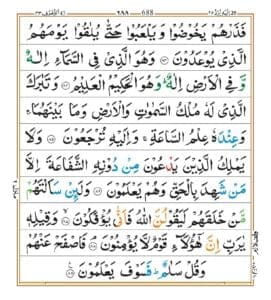 فَذَرْهُمْ يَخُوضُوْا وَيَلْعَبُوْا حَتّٰى يُلٰقُوْا يَوْمَهُمُ
الَّذِىْ يُوْعَدُوْنَ ۝ وَهُوَ الَّذِىْ فِى السَّمَآءِ اِلٰهٌ
وَّفِى الْاَرْضِ اِلٰهٌ ؕ وَهُوَ الْحَكِيْمُ الْعَلِيْمُ ۝ وَتَبٰرَكَ
الَّذِىْ لَهٗ مُلْكُ السَّمٰوٰتِ وَالْاَرْضِ وَمَا بَيْنَهُمَا ۚ
وَعِنْدَهٗ عِلْمُ السَّاعَةِ ۚ وَاِلَيْهِ تُرْجَعُوْنَ ۝ وَلَا
يَمْلِكُ الَّذِيْنَ يَدْعُوْنَ مِنْ دُوْنِهِ الشَّفَاعَةَ اِلَّا
مَنْ شَهِدَ بِالْحَقِّ وَهُمْ يَعْلَمُوْنَ ۝ وَلَئِنْ سَاَلْتَهُمْ
مَّنْ خَلَقَهُمْ لَيَقُوْلُنَّ اللّٰهُ فَاَنّٰى يُؤْفَكُوْنَ ۝ وَقِيْلِهٖ
يٰرَبِّ اِنَّ هٰٓؤُلَآءِ قَوْمٌ لَّا يُؤْمِنُوْنَ ۝ فَاصْفَحْ عَنْهُمْ
وَقُلْ سَلٰمٌ ؕ فَسَوْفَ يَعْلَمُوْنَ ۝